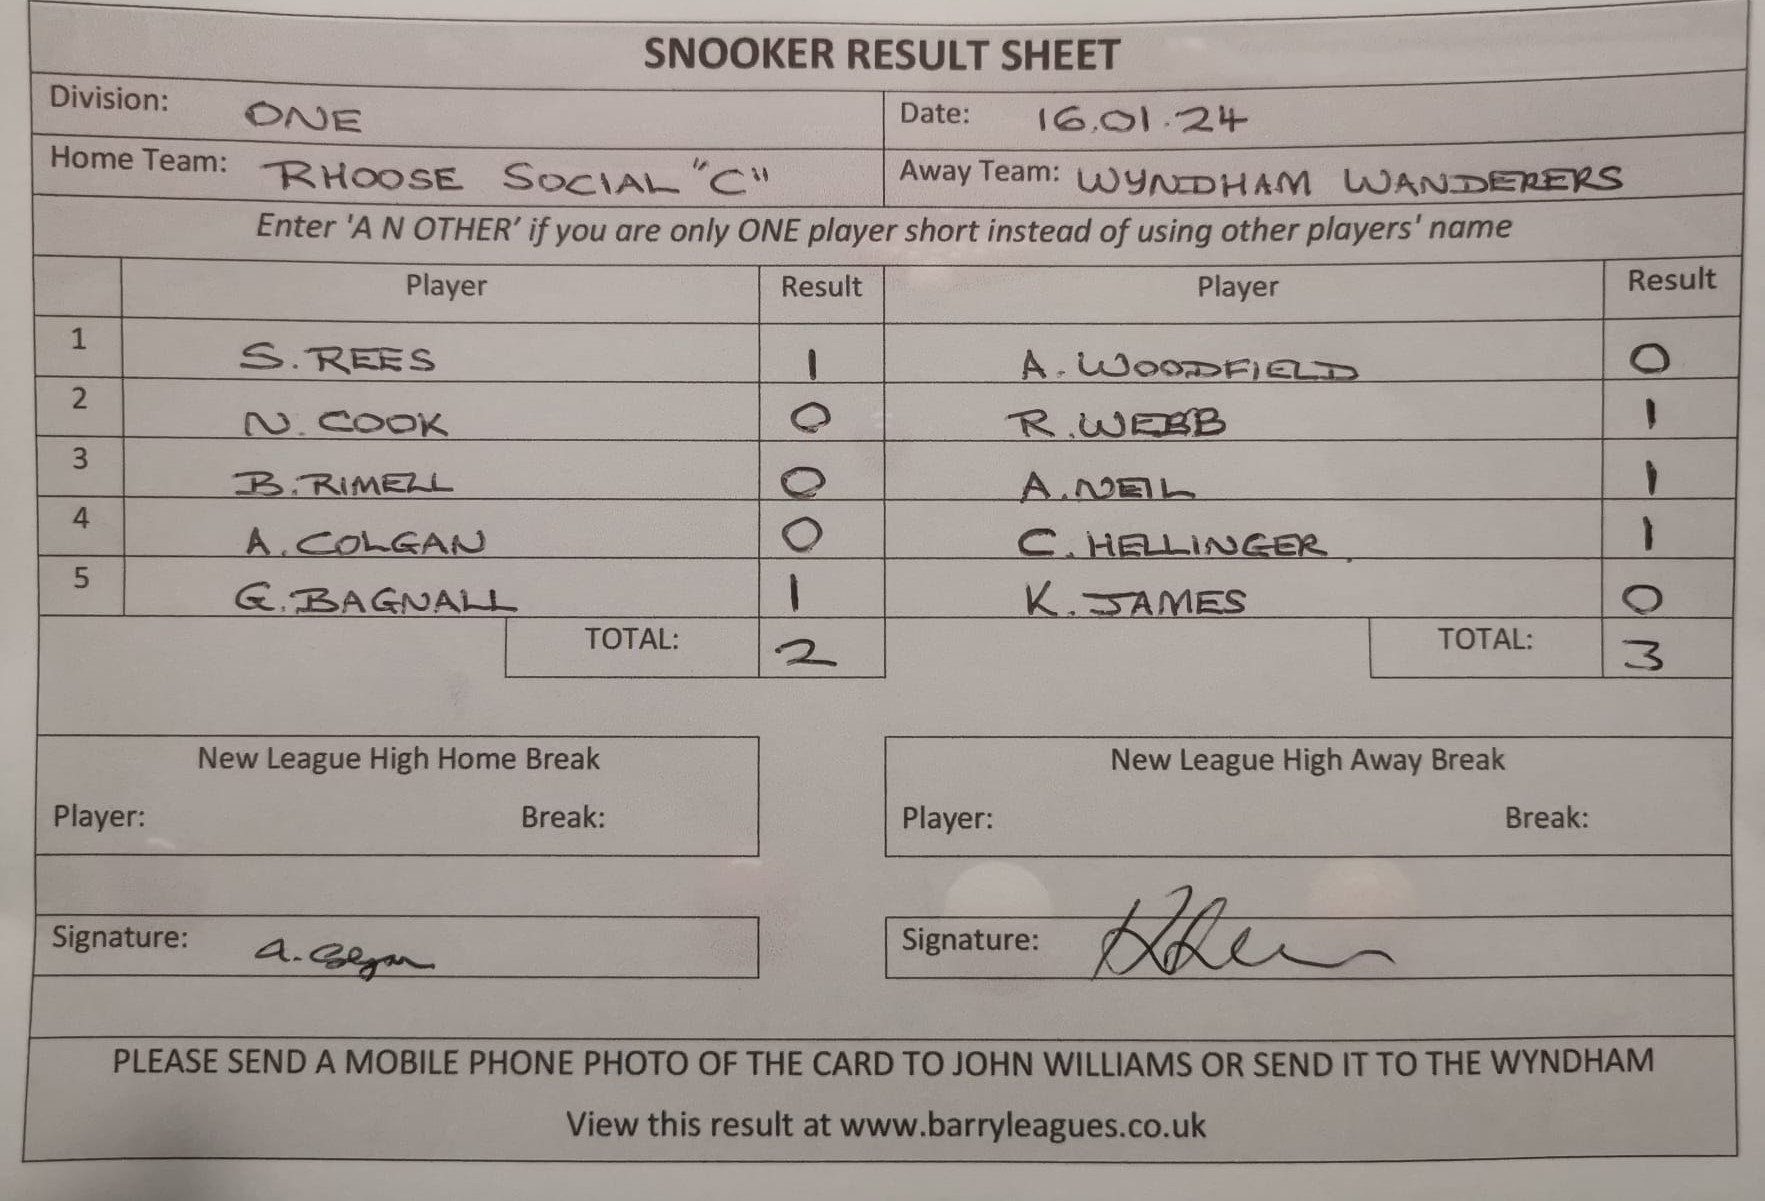 SNOOKER RESULT SHEET
Division: ONE Date: 16.01.24
Home Team: RHOOSE SOCIAL "C" Away Team: WYNDHAM WANDERERS
Enter 'A N OTHER' if you are only ONE player short instead of using other players' name
Player Result Player Result
1 S. REES 1 A. WOODFIELD 0
2 N. COOK 0 R. WEBB 1
3 B. RIMELL 0 A. NEIL 1
4 A. COLGAN 0 C. HELLINGER 1
5 G. BAGNALL 1 K. JAMES 0
TOTAL: 2 TOTAL: 3
New League High Home Break New League High Away Break
Player: Break: Player: Break:
Signature: A. Colgan Signature:
PLEASE SEND A MOBILE PHONE PHOTO OF THE CARD TO JOHN WILLIAMS OR SEND IT TO THE WYNDHAM
View this result at www.barryleagues.co.uk